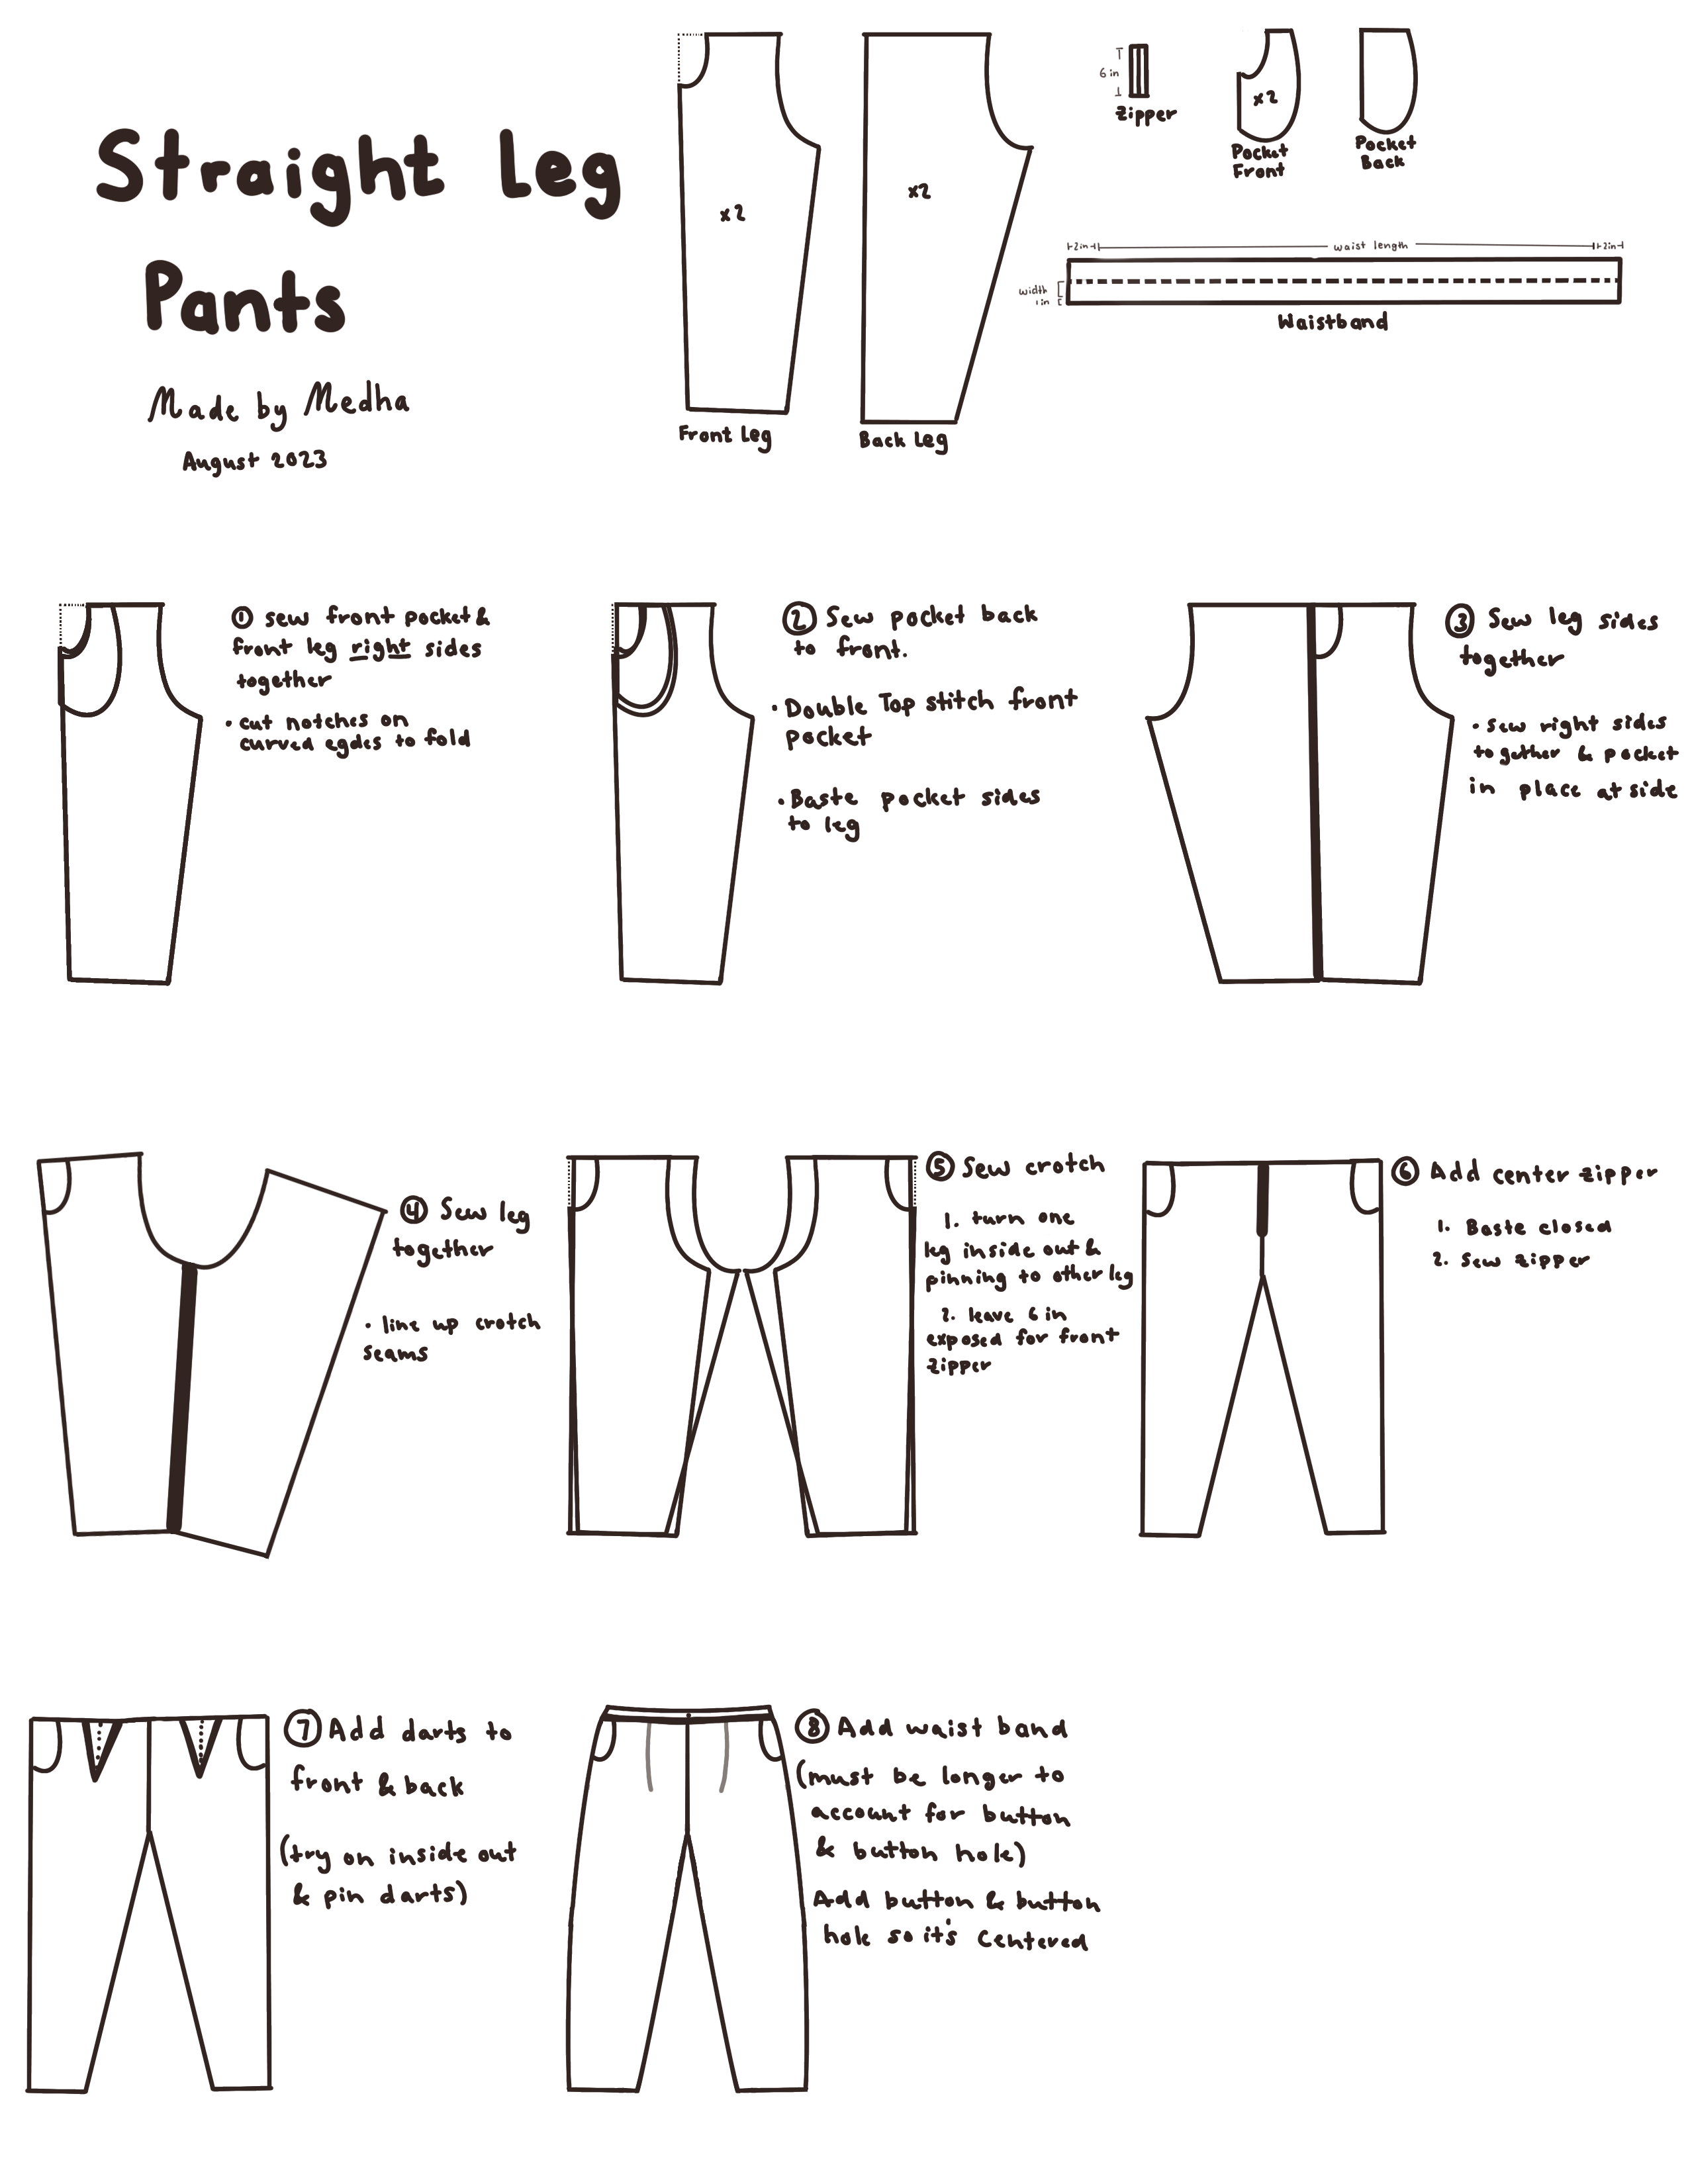 Straight Leg
Pants
Made by Medha
August 2023
x2
Front Leg
x2
Back Leg
6 in
Zipper
x2
Pocket
Front
Pocket
Back
2in
waist length
2in
width
1in
Waistband
① sew front pocket &
front leg right sides
together
• cut notches on
curved egdes to fold
② Sew pocket back
to front.
• Double Top stitch front
pocket
• Baste pocket sides
to leg
③ Sew leg sides
together
• Sew right sides
together & pocket
in place at side
④ Sew leg
together
• line up crotch
seams
⑤ Sew crotch
1. turn one
leg inside out &
pinning to other leg
2. leave 6 in
exposed for front
zipper
⑥ Add center zipper
1. Baste closed
2. Sew zipper
⑦ Add darts to
front & back
(try on inside out
& pin darts)
⑧ Add waist band
(must be longer to
account for button
& button hole)
Add button & button
hole so it's centered